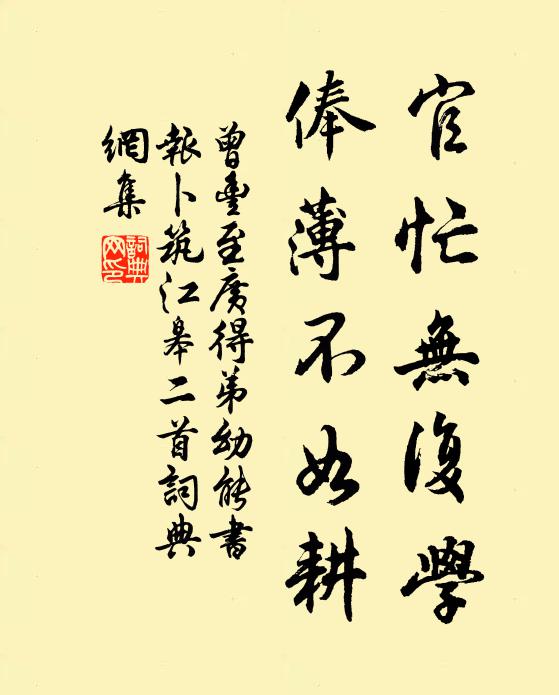 官忙無復學
俸薄不如耕
曾豐至廣得弟幼能書
報卜筑江皋二首詞典
網集
詞典網印